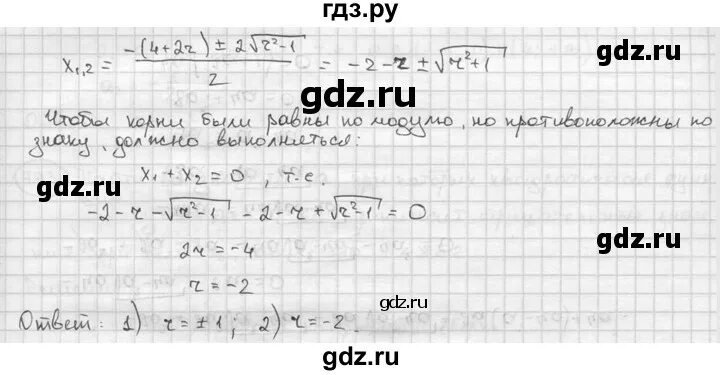 гдз.ру
x₁,₂ = (-(4+2r) ± 2√(r²-1))/2 = -2-r ± √(r²+1)
gdz.ru
gdz.ru
Чтобы корни были равны по модулю, но противоположны по
знаку, должно выполняться:
x₁ + x₂ = 0, т.е.
gdz.ru
-2-r-√(r²-1) -2-r+√(r²-1) = 0
2r = -4
gdz.ru
r = -2
gdz.ru
Ответ: 1) r = ±1; 2) r = -2.
gdz.ru
gdz.ru